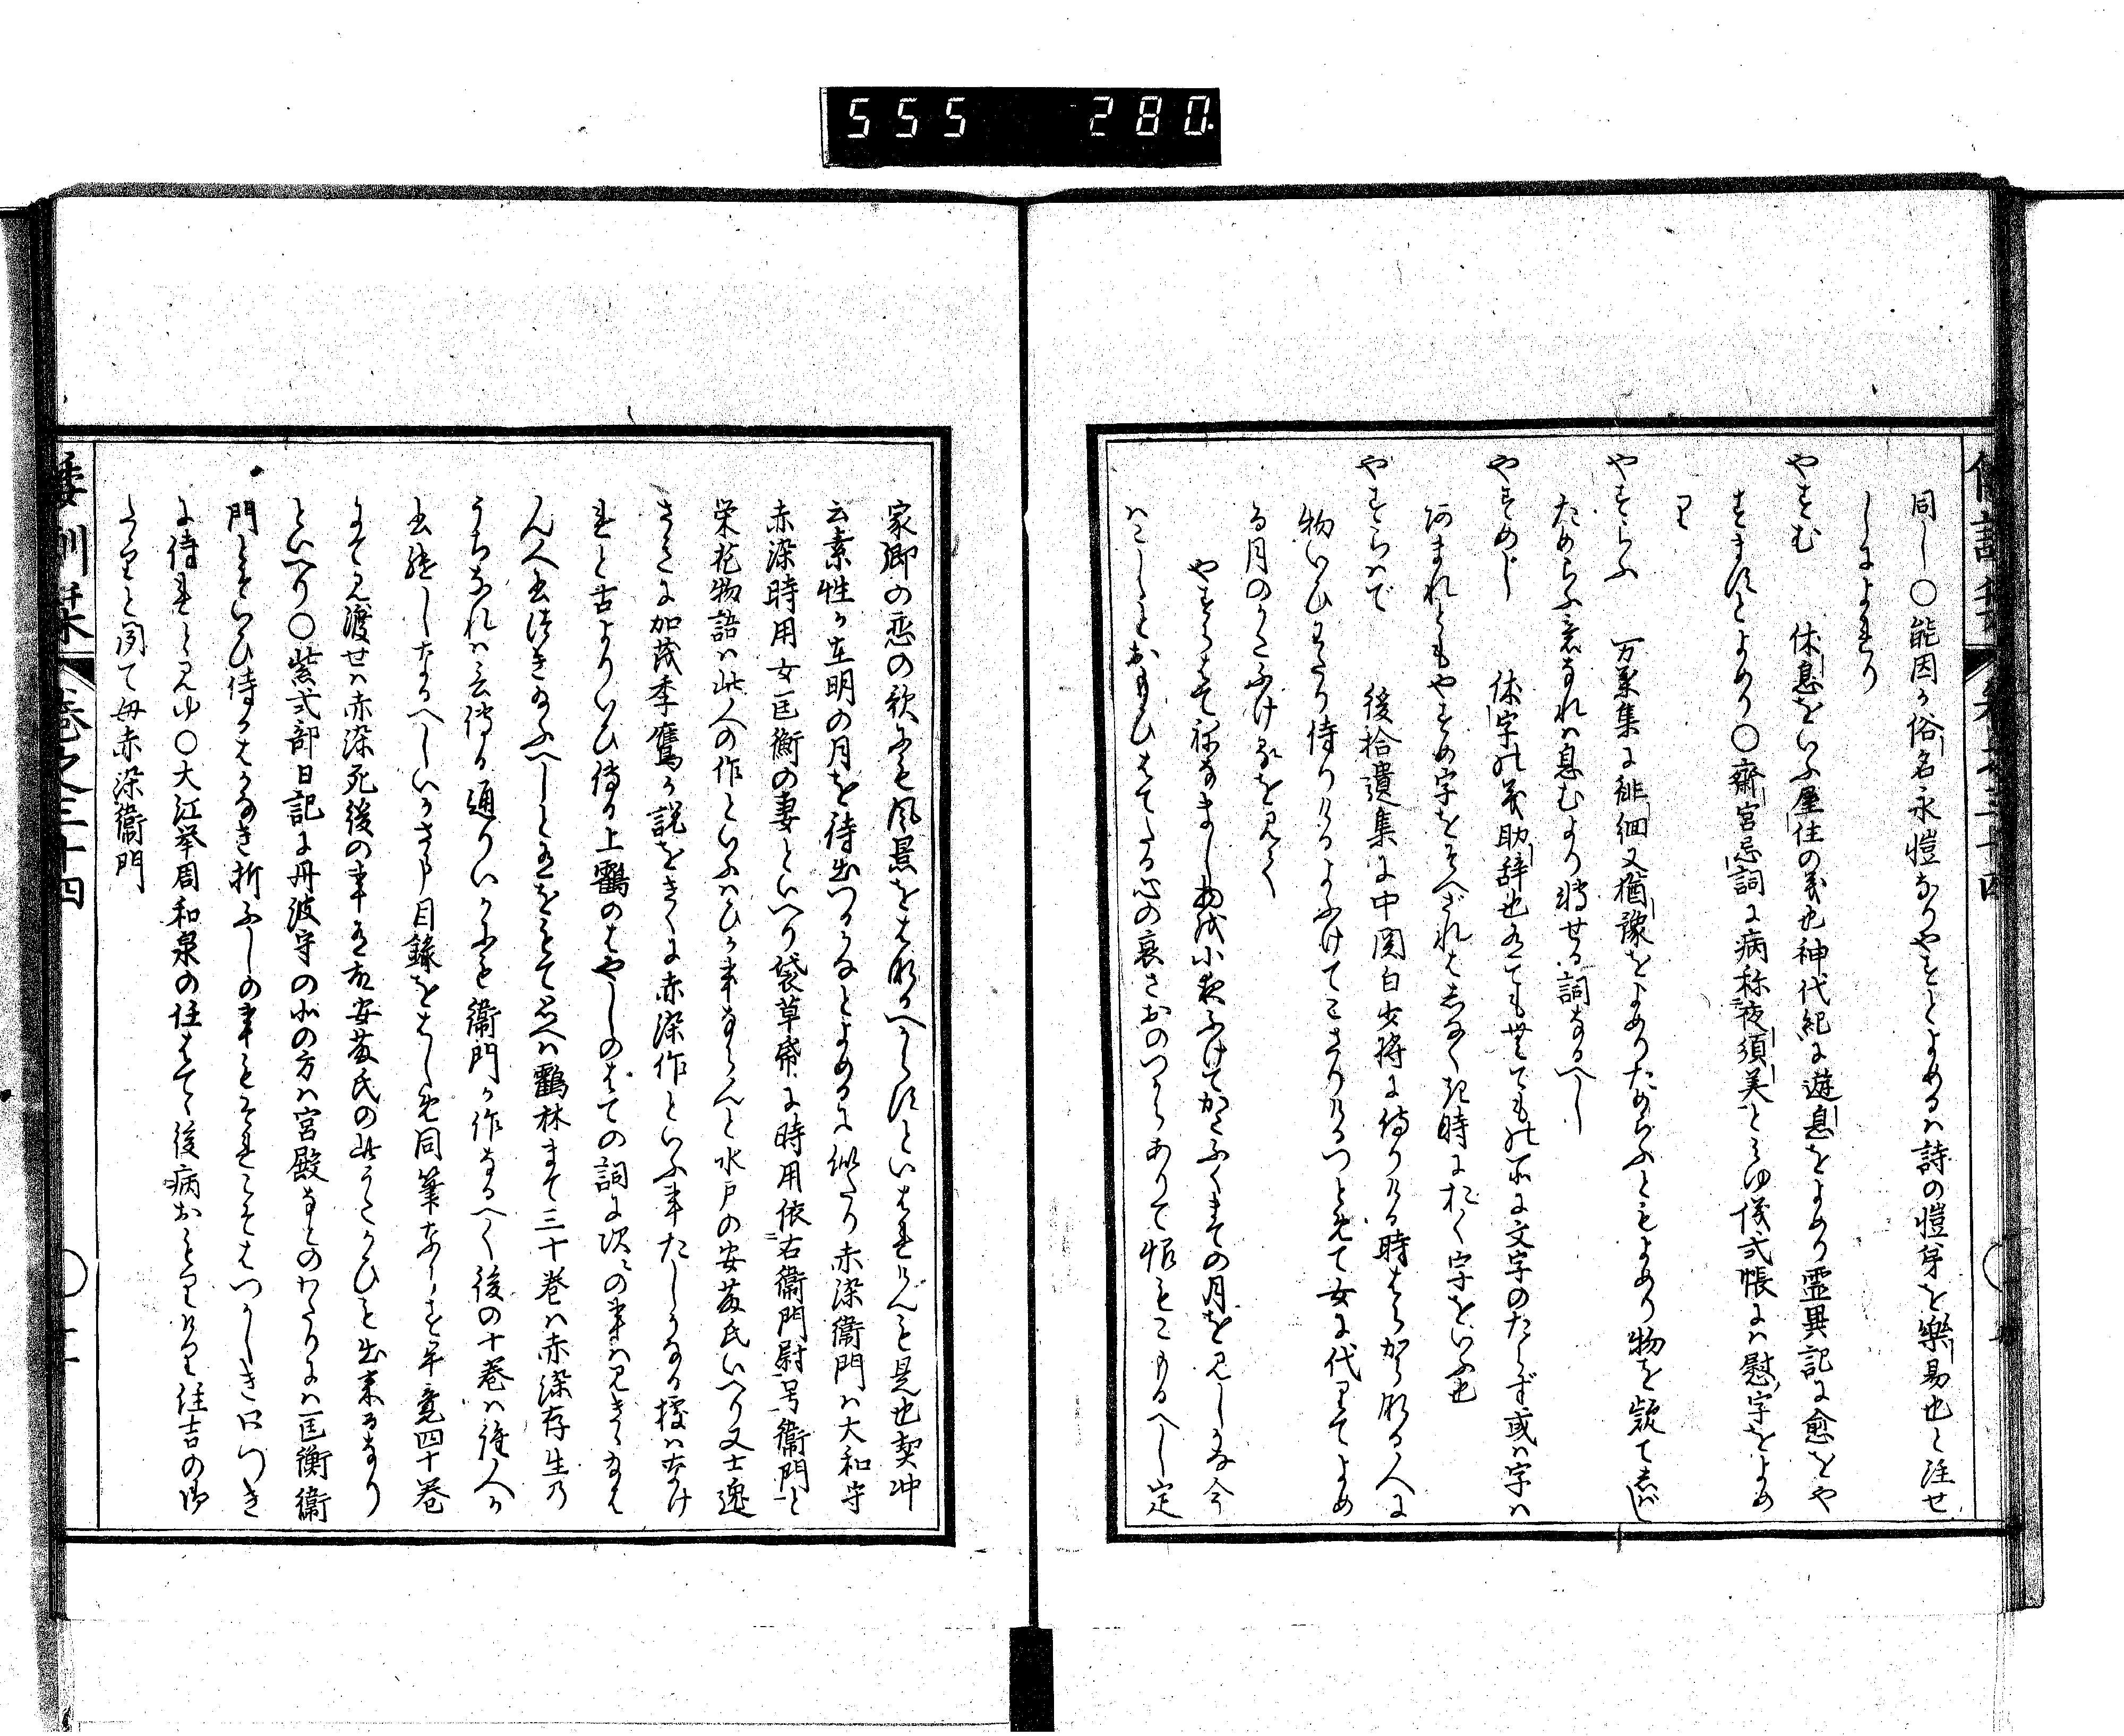 555 280.
同し〇能因か俗名永愷なりやすとよめるハ詩の愷弟を樂易也と註せ
しによれり
やすむ 休息をいふ屋住の義也神代紀に遊息をよめり霊異記に愈をや
すまるとよめり〇齋宮忌詞に病称夜須美と見ゆ儀式帳にハ慰字をよめ
り
やすらふ 万葉集に徘徊又猶豫をよめりためらふともよめり物を疑て志ばし
ためらふ意なれハ息むより轉せる詞なるへし
やすめじ 休字の義助辞也有ても無ても の所に文字のたらず或ハ字ハ
あまれともやすめ字をそへざれは志なく き時におく字をいふ也
やすらハで 後拾遺集に中関白少将に侍りける時はらから なる人に
物いひわたり侍りけるよふけてこさりけるつとめて女に代りてよめ
る月のかたふけるを見て
やすらはて寝なまし物を小夜ふけてかたふくまての月を見しかな今
ハこしとおもひはてたる心の哀さおのつからありて恨もこもるへし定
家卿の恋の歌にも風景をはなるへからすといはれけんも是也契冲
云素性か在明の月を待出つるかなとよめるに似たり赤染衛門ハ大和守
赤染時用女匡衡の妻といへり袋草帋に時用依右衛門尉号衛門と
栄花物語ハ此人の作といふハひか事ならんと水戸の安藤氏いへり又士逸
さきに加茂季鷹か説をきくに赤染作といふ事たしかなる據ハなけ
れと古よりいひ侍る上鶴のはやしのはての詞に次々の事ハ見きく給は
ん人書つき給ふへしと有をもて思へハ鶴林まて三十巻ハ赤染存生の
うちなれハ云傳る通りいかにも衛門か作なるへく後の十巻ハ後人か
書継しなるへしいかさま目録をはしめ同筆ならす年意四十巻
まて見渡せハ赤染死後の事有故安藤氏の此うたかひも出来るなり
といへり〇紫式部日記に丹波守の北の方ハ宮殿なとのわたりにハ匡衡衛
門とそいひ侍るはかなき折ふしの事もそれこそはつかしき口つき
に侍れと見ゆ〇大江挙周和泉の任はてゝ後病おもりけり住吉の御
たゝりと聞て母赤染衛門
倭訓栞 巻之三十四